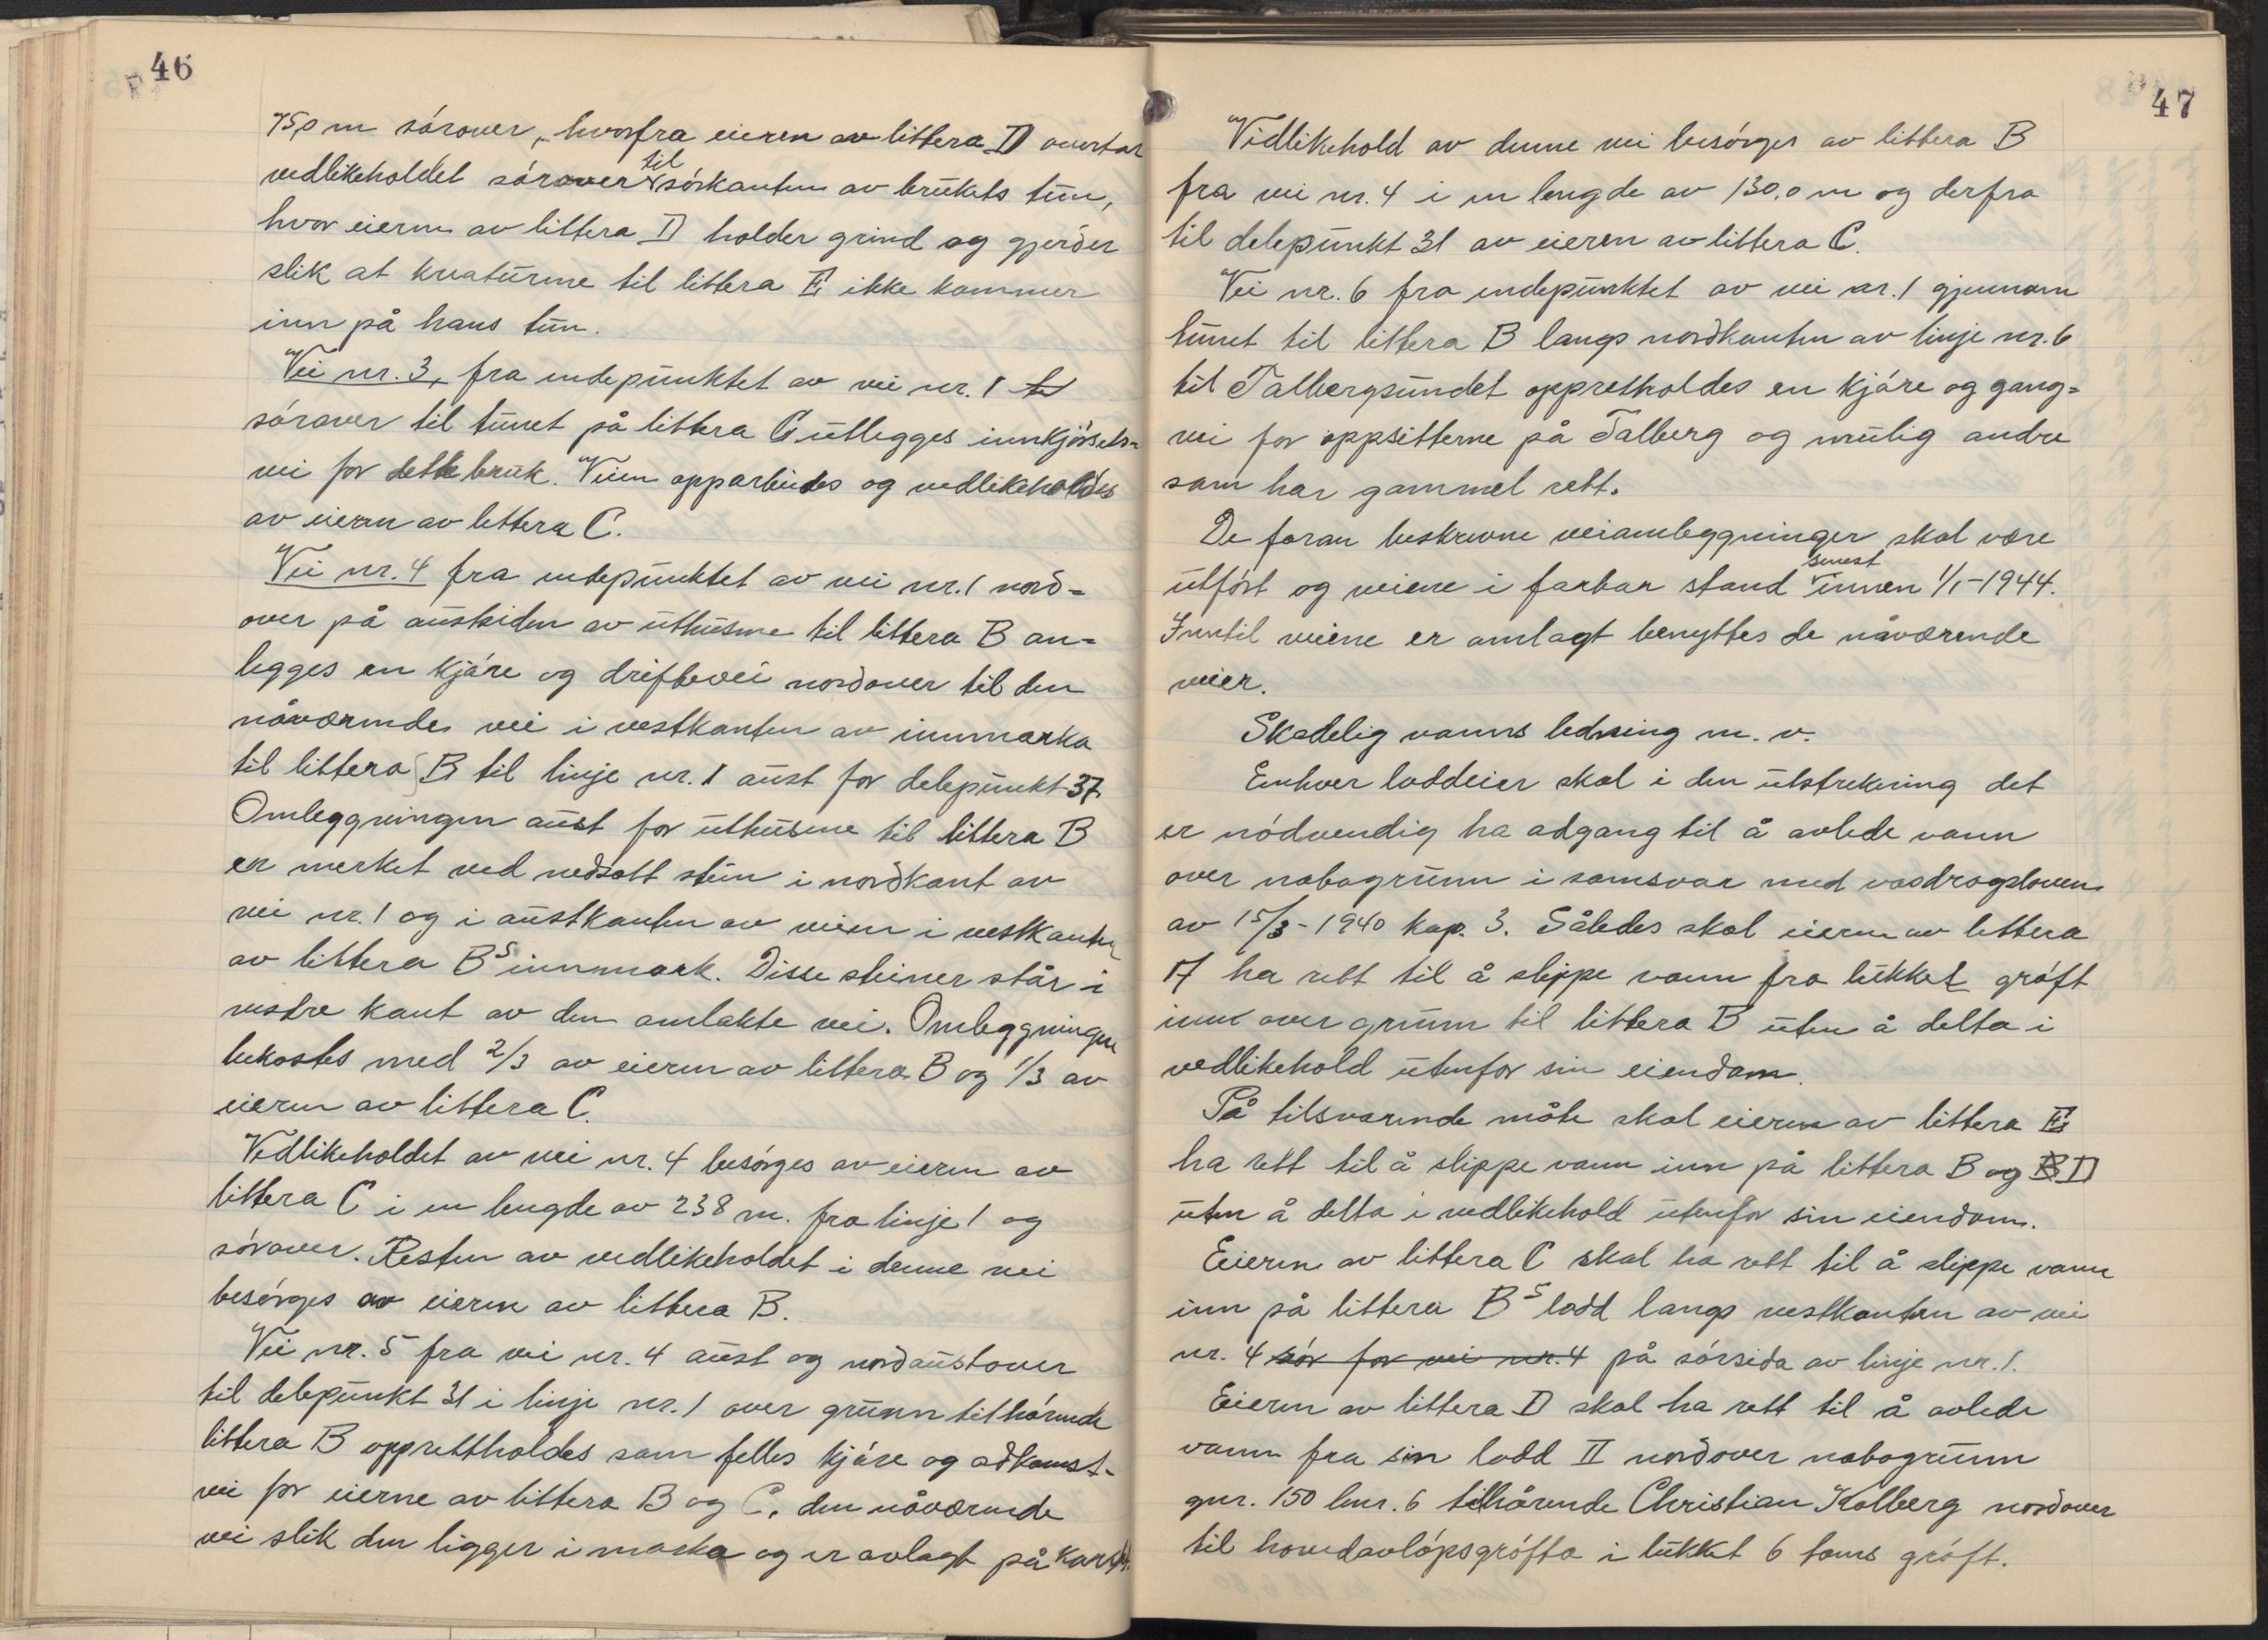 46
75,0 m sörover, hvorfra eieren av littera D overtar
vedlikeholdet sörover til sörkanten av brukets tun,
hvor eieren av littera D holder grind og gjerder
slik at kreaturene til littera E ikke kommer
inn på hans tun.
Vei nr. 3, fra endepunktet av vei nr. 1
sörover til tunet på littera C utlegges innkjörsels-
vei for dette bruk. Veien opparbeides og vedlikeholdes
av eieren av littera C.
Vei nr. 4 fra endepunktet av vei nr. 1 nord-
over på austsiden av uthusene til littera B an-
legges en kjöre og driftevei nordover til den
nåværende vei i vestkanten av innmarka
til littera B til linje nr. 1 aust for delepunkt 37.
Omleggningen aust for uthusene til littera B
er merket ved nedsatt stein i nordkant av
vei nr. 1 og i austkanten av veien i vestkanten
av littera B's innmark. Disse steiner står i
vestre kant av den omlakte vei. Omleggningen
bekostes med 2/3 av eieren av littera B og 1/3 av
eieren av littera C.
Vedlikeholdet av vei nr. 4 besörges av eieren av
littera C i en lengde av 238 m. fra linje 1 og
sörover. Resten av vedlikeholdet i denne vei
besörges av eieren av littera B.
Vei nr. 5 fra vei nr. 4 aust og nordaustover
til delepunkt 31 i linje nr. 1 over grunn tilhörende
littera B opprettholdes som felles kjöre og adkomst-
vei for eierne av littera B og C, den nåværende
vei slik den ligger i marka og er avlagt på kartet.
47
Vedlikehold av denne vei besörges av littera B
fra vei nr. 4 i en lengde av 130,0 m og derfra
til delepunkt 31 av eieren av littera C.
Vei nr. 6 fra endepunktet av vei nr. 1 gjennom
tunet til littera B langs nordkanten av linje nr. 6
til Talbergsundet oppretholdes en kjöre og gang=
vei for oppsitterne på Talberg og mulig andre
som har gammel rett.
De foran beskrevne veiomleggninger skal være
utfört og veiene i farbar stand senest innen 1/1-1944.
Inntil veiene er omlagt benyttes de nåværende
veier.
Skadelig vanns ledning m. v.
Enhver loddeier skal i den utstrekning det
er nödvendig ha adgang til å avlede vann
over nabogrunn i samsvar med vasdragsloven
av 15/3-1940 kap. 3. Således skal eieren av littera
A ha rett til å slippe vann fra lukket gröft
inn over grunn til littera B uten å delta i
vedlikehold utenfor sin eiendom.
På tilsvarende måte skal eieren av littera E
ha rett til å slippe vann inn på littera B og B D
uten å delta i vedlikehold utenfor sin eiendom.
Eieren av littera C skal ha rett til å slippe vann
inn på littera B's lodd langs vestkanten av vei
nr. 4 sör for vei nr. 4 på sörsida av linje nr. 1.
Eieren av littera D skal ha rett til å avlede
vann fra sin lodd II nordover nabogrunn
gnr. 150 bnr. 6 tilhörende Christian Kolberg nordover
til hovedavlöpsgröfta i lukket 6 toms gröft.